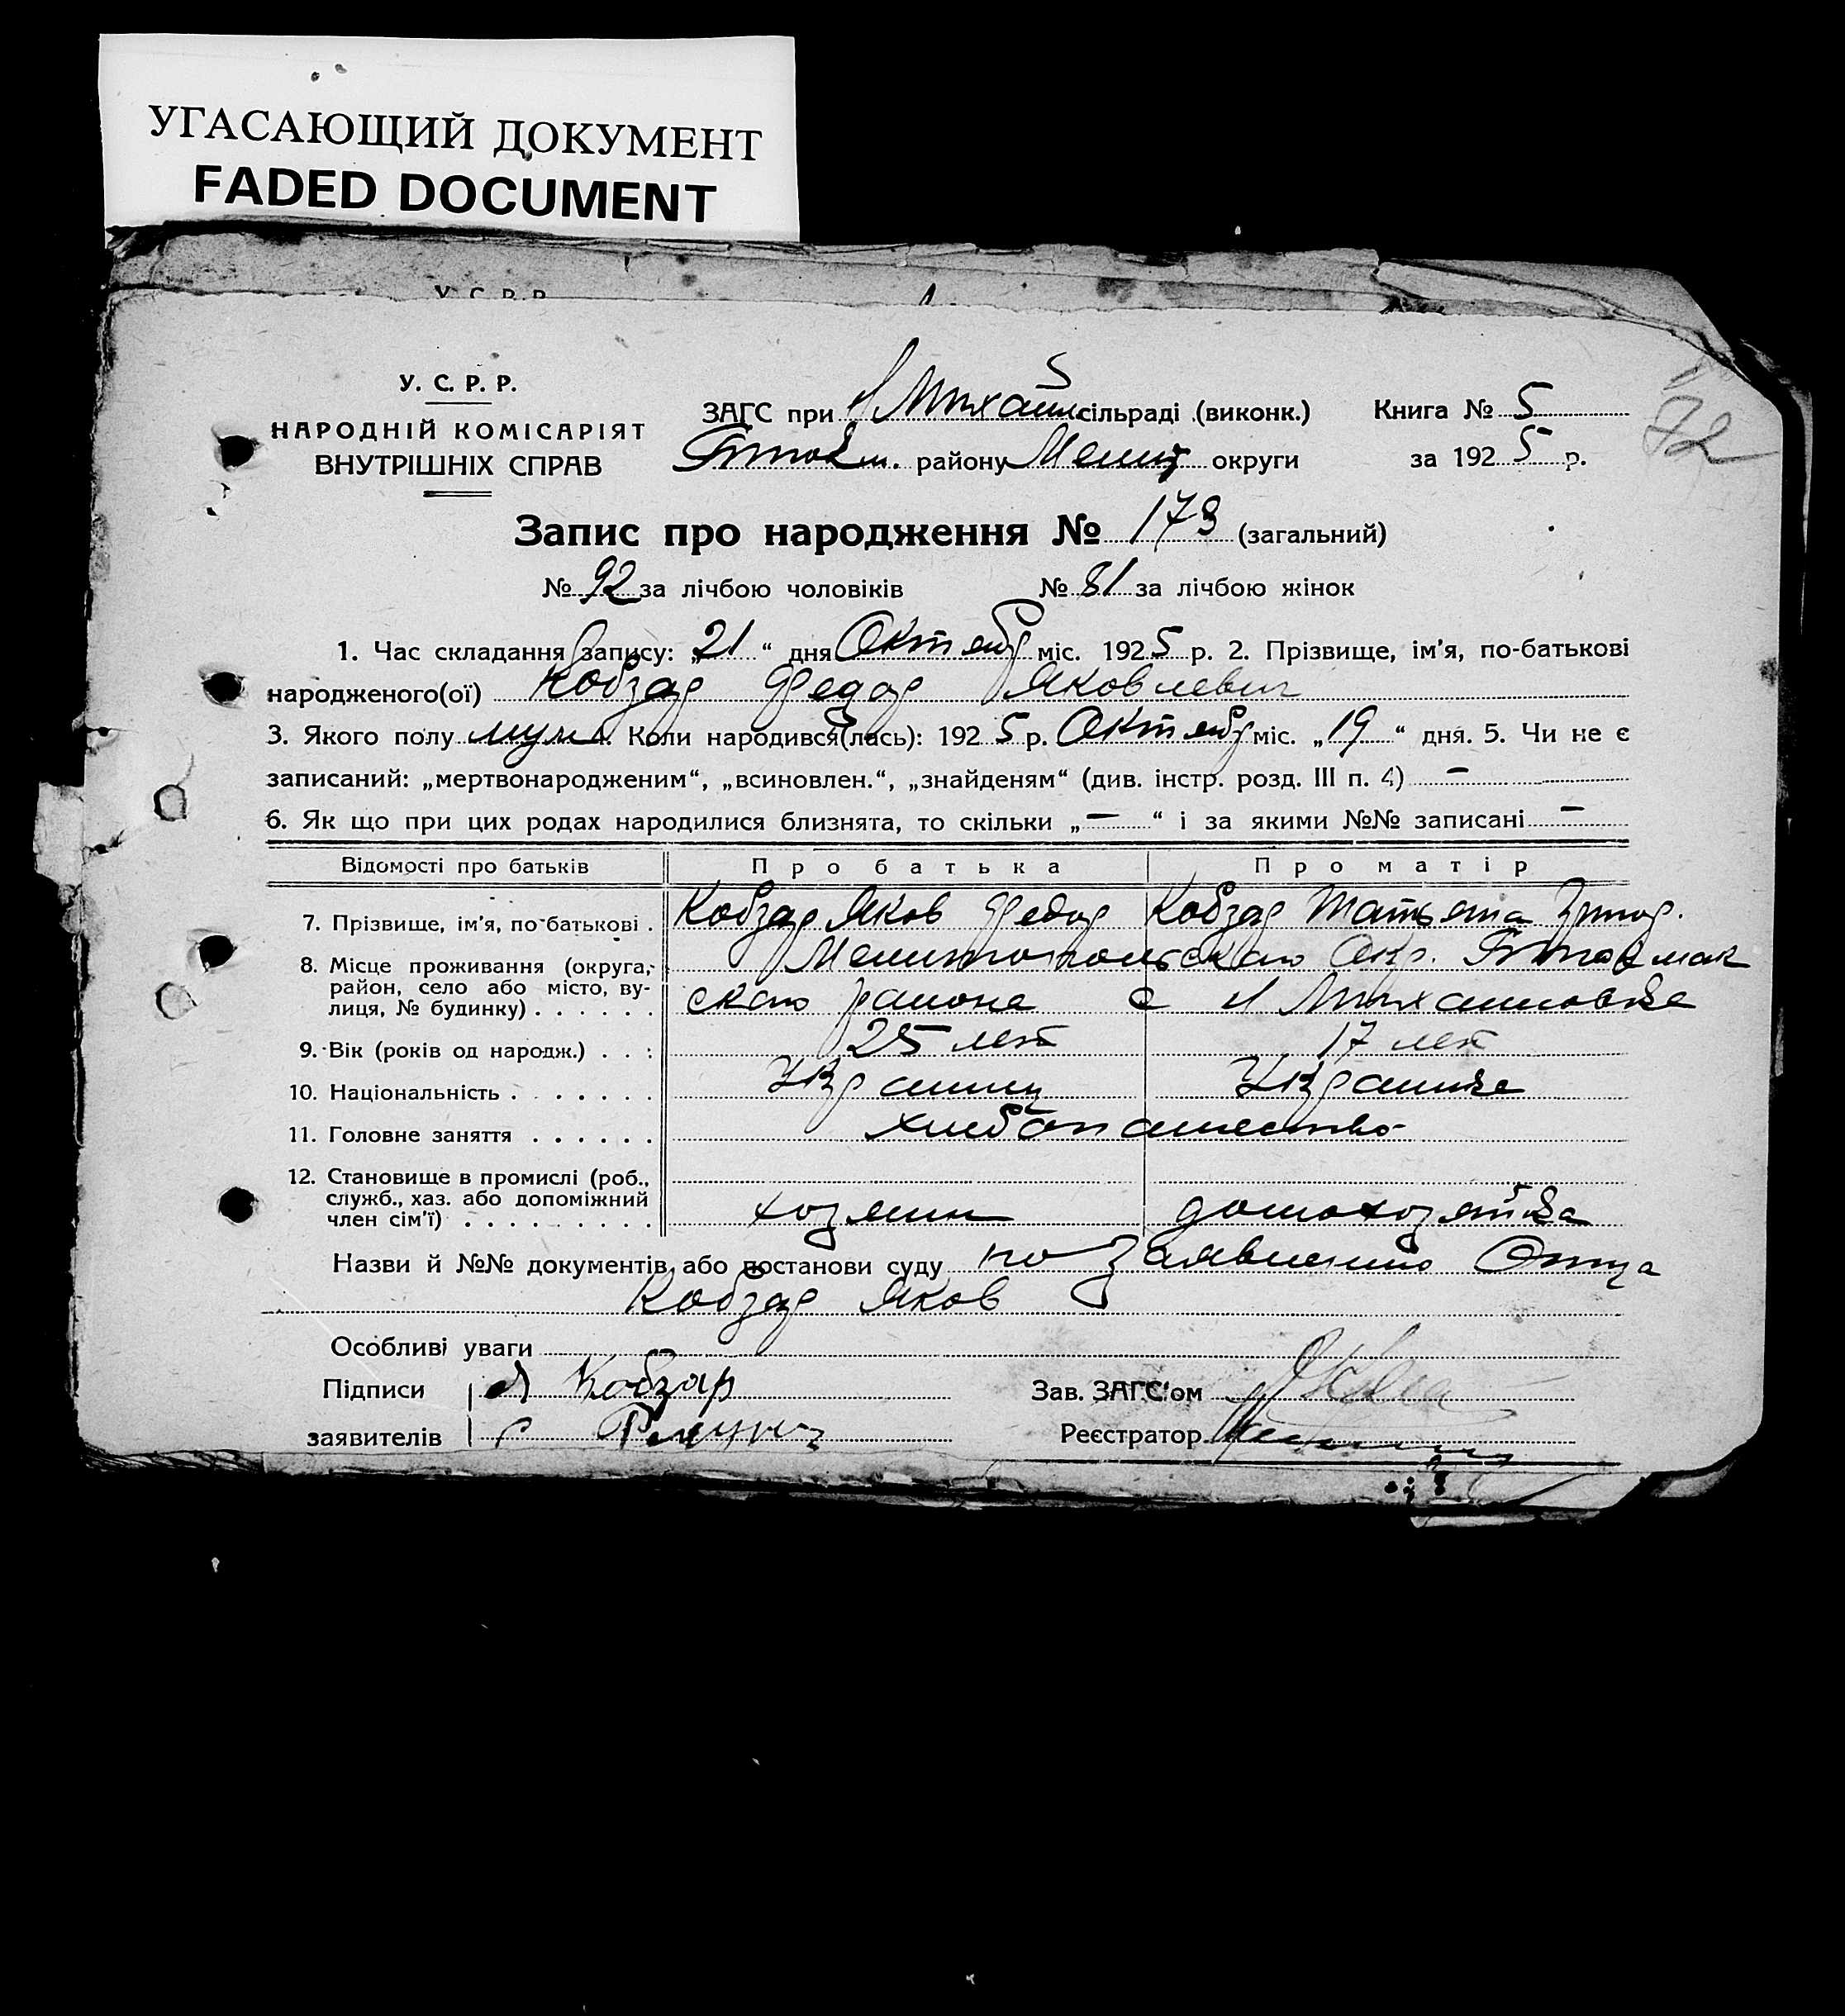 УГАСАЮЩИЙ ДОКУМЕНТ
FADED DOCUMENT
У. С. Р. Р.
У. С. Р. Р.
НАРОДНІЙ КОМІСАРІЯТ
ВНУТРІШНІХ СПРАВ
ЗАГС при Михайл сільраді (виконк.) Книга № 5
району Мелит округи за 1925 р.
72
Запис про народження № 173 (загальний)
№ 92 за лічбою чоловіків № 81 за лічбою жінок
1. Час складання запису: „21“ дня Октябр міс. 1925 р. 2. Прізвище, ім'я, по-батькові
народженого(ої) Кобзар Федор Яковлевич
3. Якого полу муж. Коли народився(лась): 1925 р. Октябр міс. „19“ дня. 5. Чи не є
записаний: „мертвонародженим“, „всиновлен.“, „знайденям“ (див. інстр. розд. III п. 4) —
6. Як що при цих родах народилися близнята, то скільки „—“ і за якими №№ записані —
Відомості про батьків Про батька Про матір
7. Прізвище, ім'я, по-батькові . Кобзар Яков Федор Кобзар Татьяна
8. Місце проживання (округа, район, село або місто, вулиця, № будинку) . . . . . . Мелитопольского Окр.
ского района с Михайловка
9. Вік (років од народж.) . . . 25 лет 17 лет
10. Національність . . . . . . . Украинец Украинка
11. Головне заняття . . . . . . хлебопашество
12. Становище в промислі (роб.,
служб., хаз. або допоміжний
член сім'ї) . . . . . . . . . хозяин домохозяйка
Назви й №№ документів або постанови суду по заявлению Отца
Кобзар Яков
Особливі уваги
Підписи Кобзар Зав. ЗАГС'ом
заявителів Реєстратор